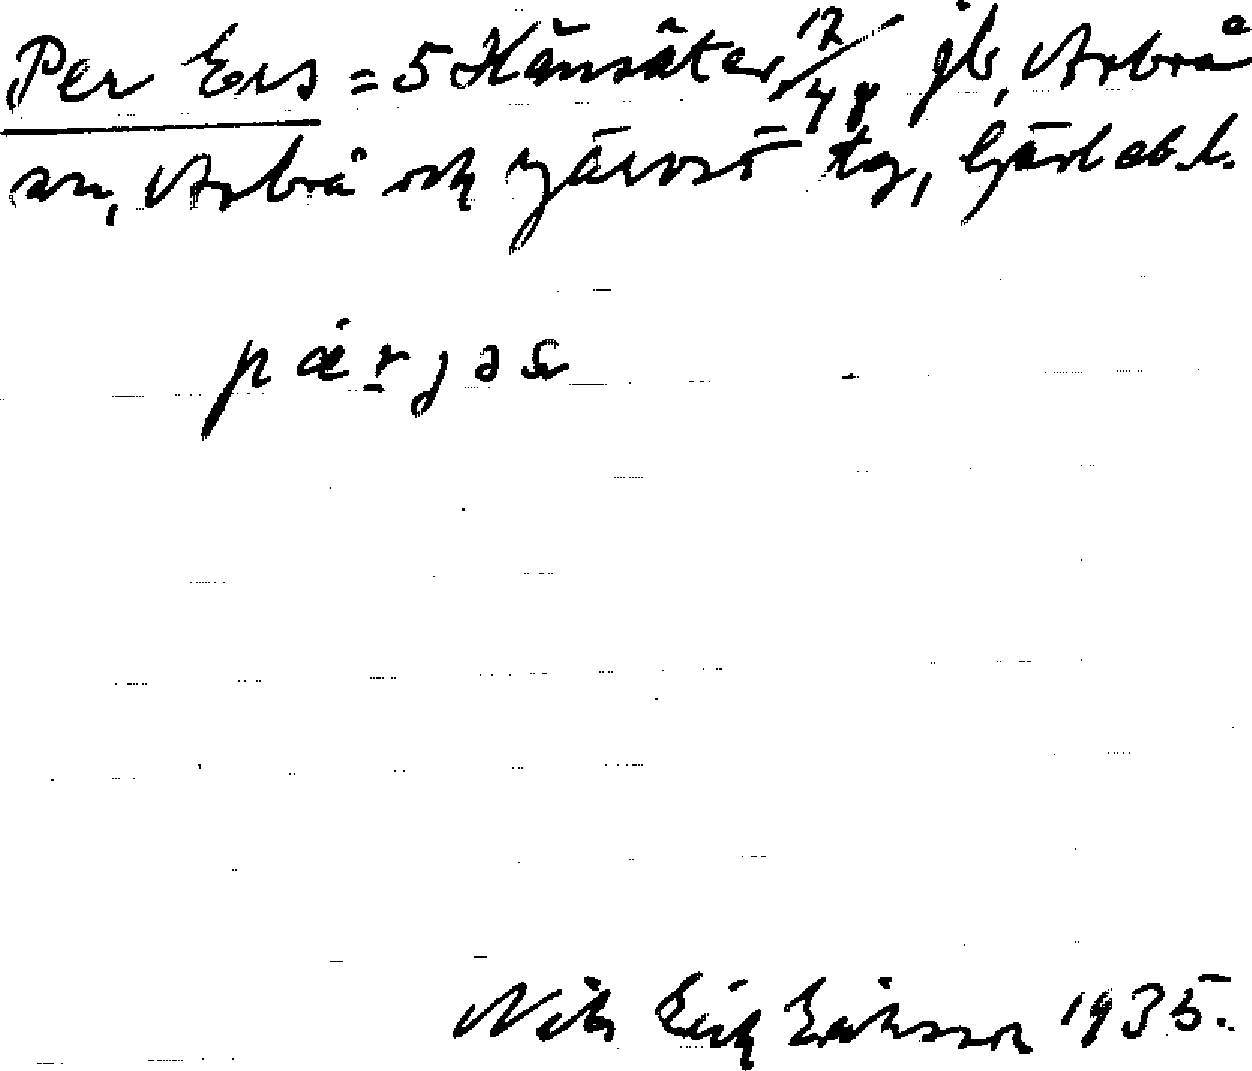 Per Ers = 5 Hänsäter, 12/48 jb, Arbrå
sn, Arbrå och Järvsö tg, Gävleb. l.
Nils Erik Eriksson 1935.